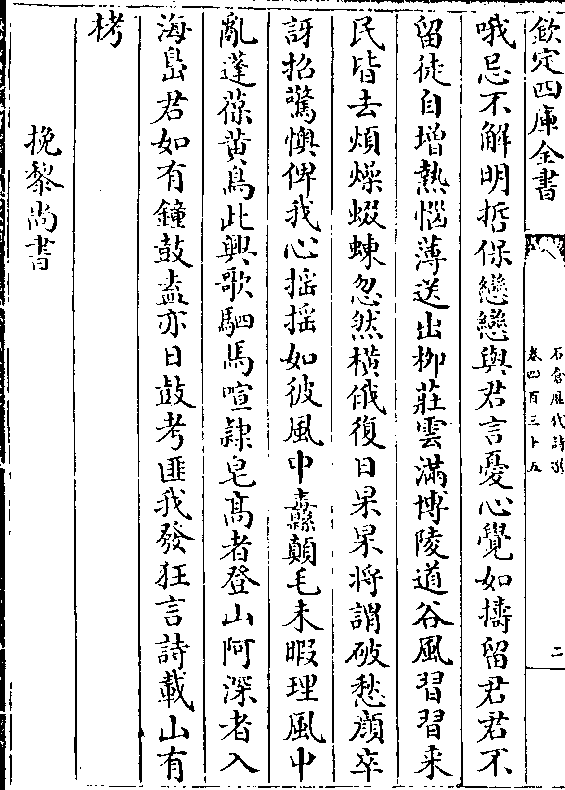 欽定四庫全書
石倉歷代詩選
卷四百三十五
二
哦忌不解明哲保戀戀與君言憂心覺如擣留君君不
留徒自增熱惱薄送出柳莊雲滿博陵道谷風習習来
民皆去煩燥蝃蝀忽然橫俄復日杲杲将謂破愁顔卒
訝招驚懊俾我心揺揺如彼風中纛顛毛未暇理風中
亂蓬葆黄鳥此興歌駟馬喧隷皂髙者登山阿深者入
海島君如有鐘鼓盍亦日鼓考匪我發狂言詩載山有
栲
挽黎尚書